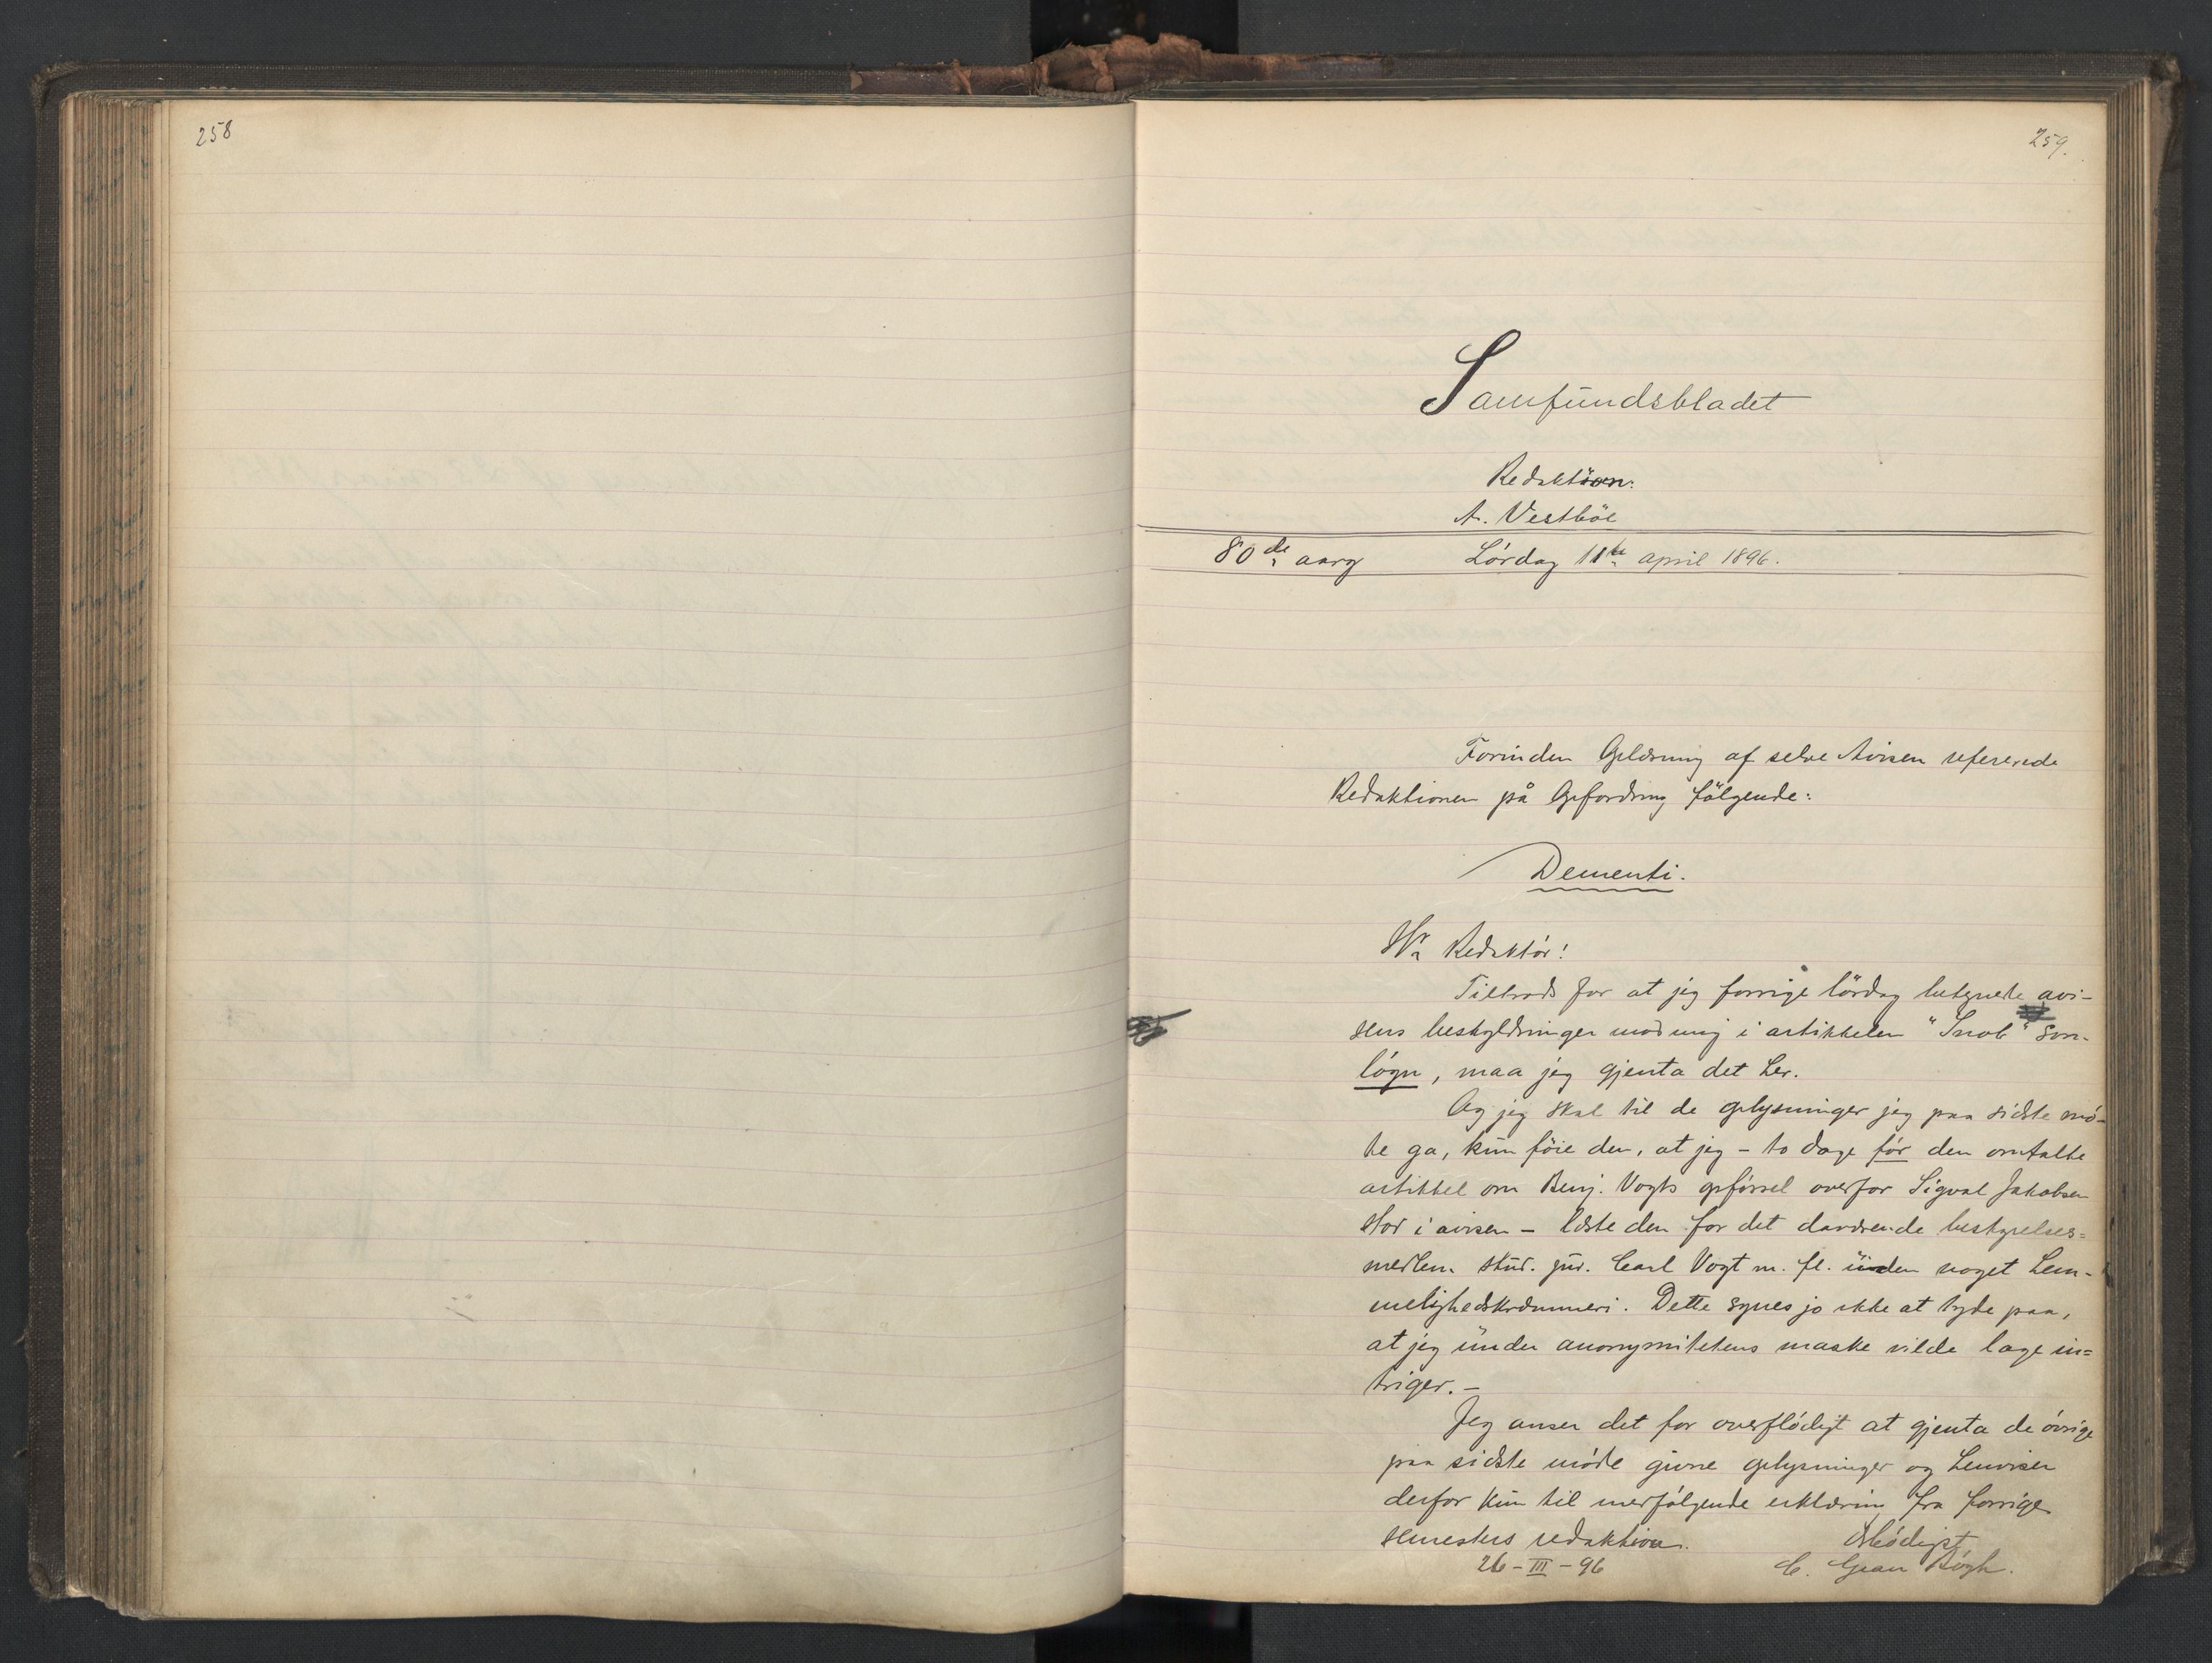 258
259.
Samfundsbladet
Redaktören:
A. Vestböe
80de aarg Lørdag 11te april 1896.
Forinden Oplæsning af selve Avisen refererede
Redaktionen på Opfordring følgende:
Dementi.
Hr Redaktør!
Tiltrods for at jeg forrige lørdag betegnede avi-
sens beskyldninger mod mig i artikkelen "Snob" som
løgn, maa jeg gjenta det her.
Og jeg skal til de oplysninger jeg paa sidste mø-
te ga, kun föie den, at jeg – to dage før den omtalte
artikkel om Benj. Vogts opførsel overfor Sigval Jakobsen
stod i avisen – læste den for det daværende bestyrelses=
medlem stud. jur. Carl Vogt m. fl. uden noget hem-
melighedskræmmeri. Dette synes jo ikke at tyde paa,
at jeg under anonymitetens maske vilde lage in=
triger. –
Jeg anser det for overflødigt at gjenta de øvrige
paa sidste møde givne oplysninger og henviser
derfor kun til medfølgende erklæring fra forrige
semesters redaktion.
Ærbödigst
26-III-96 C. Gran Bøgh.